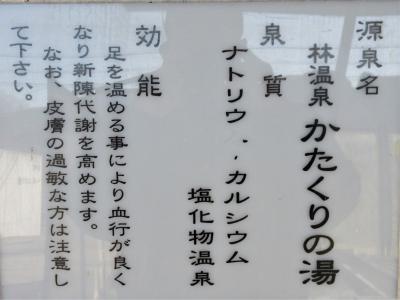 源泉名
林温泉 かたくりの湯
泉質
ナトリウム・カルシウム
塩化物温泉
効能
足を温める事により血行が良く
なり新陳代謝を高めます。
なお、皮膚の過敏な方は注意し
て下さい。